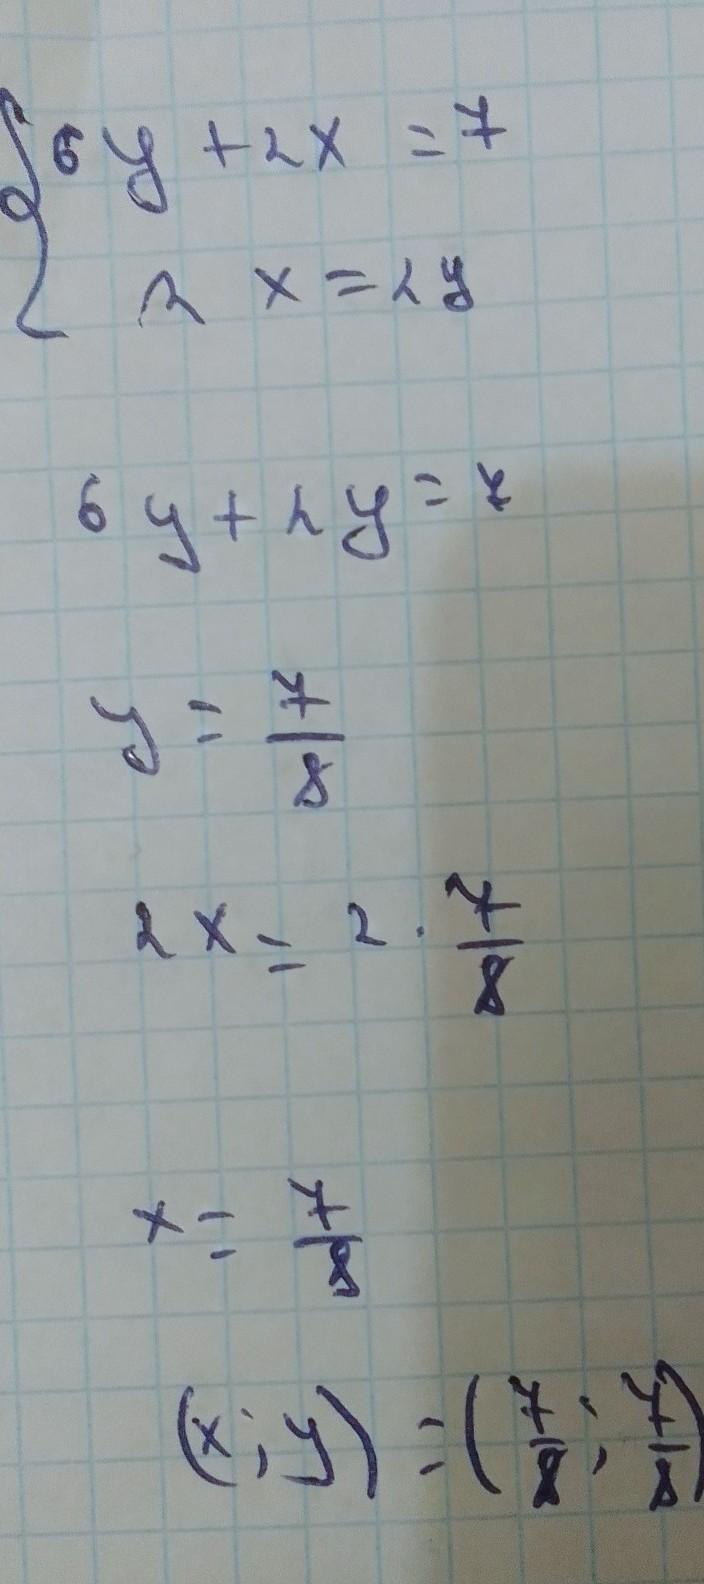 {6y + 2x = 7
2x = 2y
6y + 2y = 7
y = 7/8
2x = 2 · 7/8
x = 7/8
(x; y) = (7/8; 7/8)